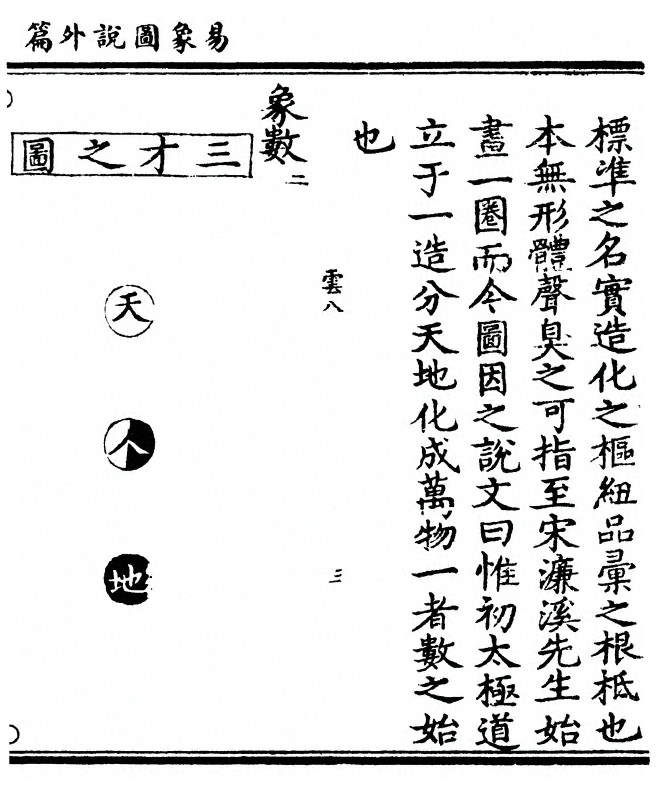 易象圖說外篇
標準之名實造化之樞紐品彙之根柢也
本無形體聲臭之可指至宋濂溪先生始
畫一圈而今圖因之說文曰惟初太極道
立于一造分天地化成萬物一者數之始
也
雲八
三
象數二
三才之圖
天
人
地